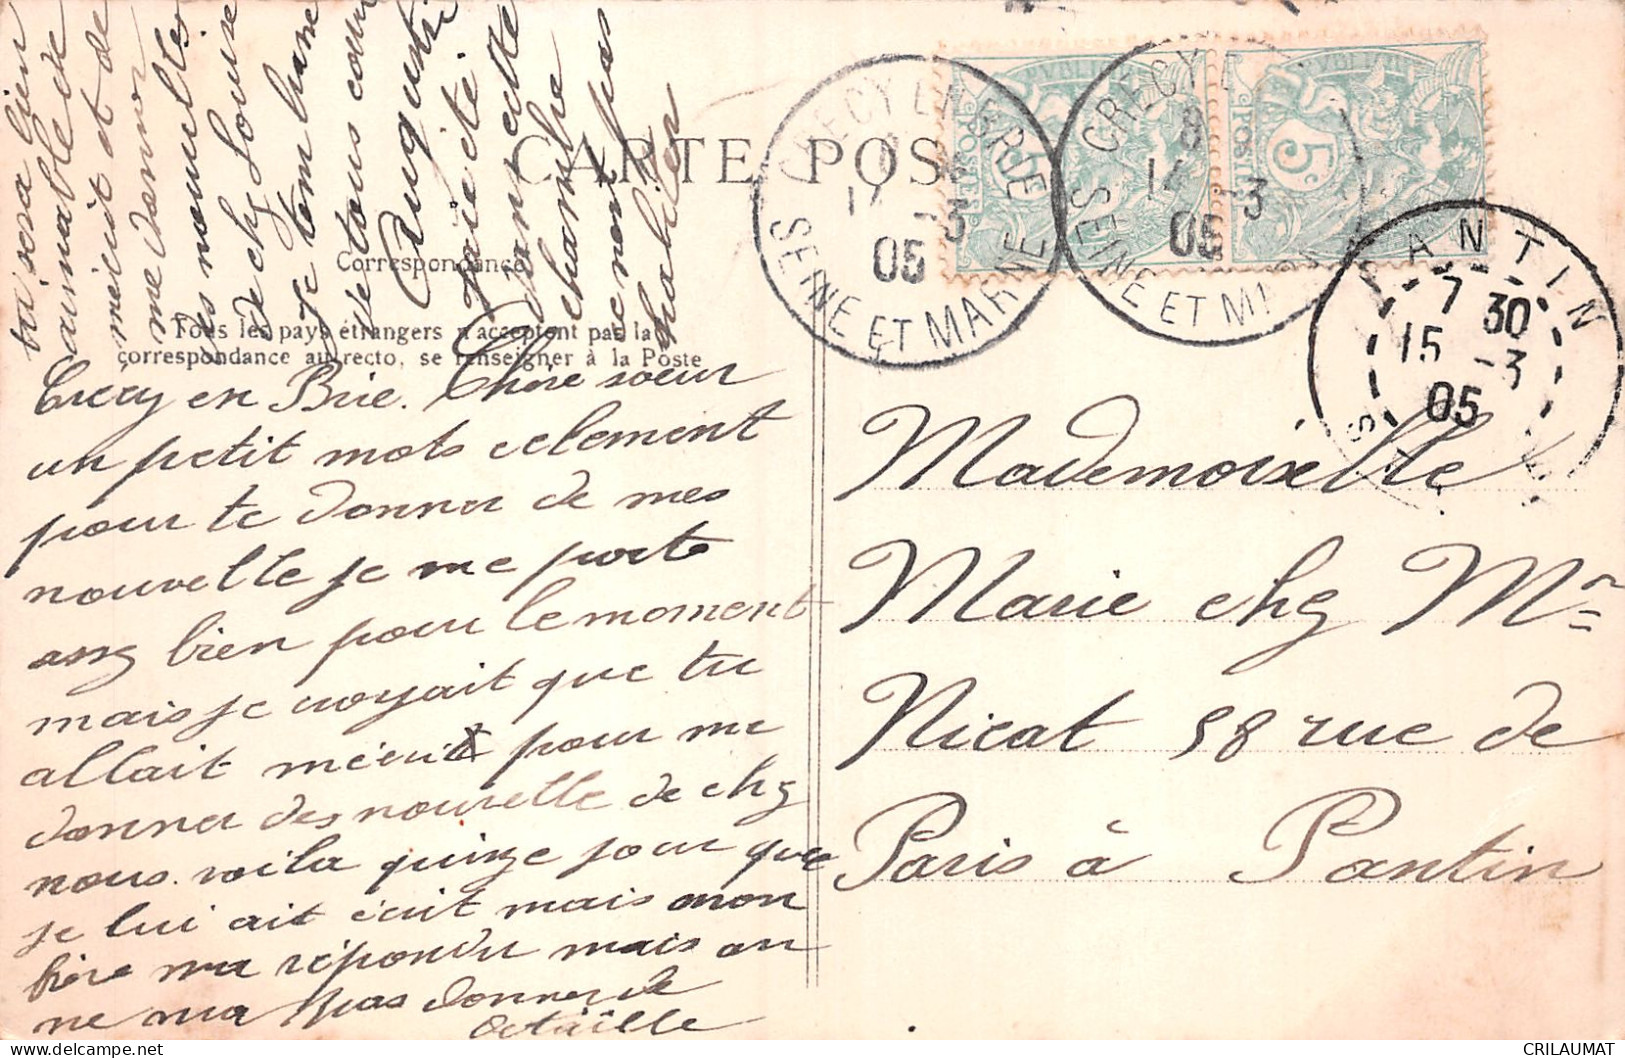 CARTE POS
Correspondance
Tous les pays étrangers n'acceptent pas la
correspondance au recto, se renseigner à la Poste
CRECY EN BRIE
14 -3
05
SEINE ET MARNE
CRECY E
8
14 -3
05
SEINE ET M
POSTES
5c
PANTIN
7 30
15 -3
05
Crécy en Brie. Chère soeur
un petit mots celement
pour te donner de mes
nouvelle je me porte
assez bien pour le moment
mais je croyait que tu
allait mécrit pour me
donner des nouvelle de chez
nous. voila quinze jour que
je lui ait écrit mais mon
frère ma répondu mais on
ne ma pas donner de
détaille
tu sera bien
aimable de
mécrit et de
me donner
des nouvelles
de chez Louise
je tembrasse
et tous cour
Augustine
jai été
dans cette
chambre
habiler
Mademoiselle
Marie chez Mr
Nicat 58 rue de
Paris à Pantin
CRILAUMAT